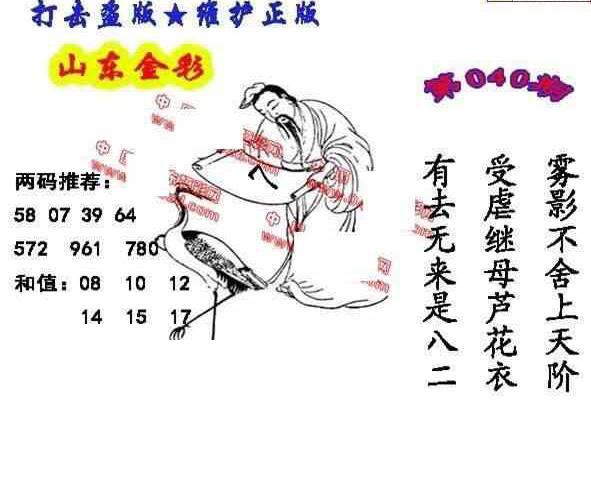 打击盗版★维护正版
山东金彩
第040期
两码推荐：
58 07 39 64
572 961 780
和值：08 10 12
14 15 17
雾影不舍上天阶
受虐继母芦花衣
有去无来是八二
八